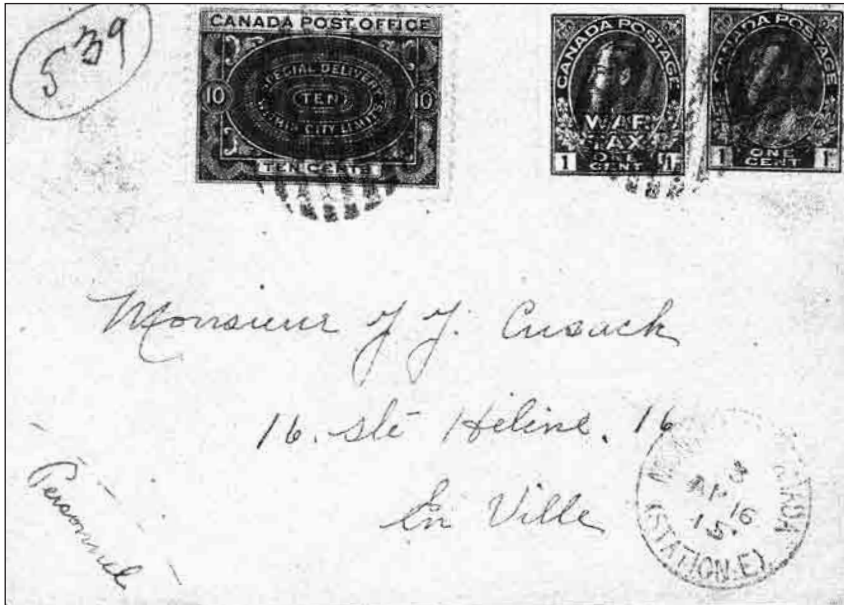 539
CANADA POST OFFICE
SPECIAL DELIVERY
10 TEN 10
WITHIN CITY LIMITS
TEN CENTS
CANADA POSTAGE
WAR
TAX
1 ONE 1
CENT
CANADA POSTAGE
1 ONE 1
CENT
Monsieur J. J. Cusack
16. Ste Hélène. 16
En Ville
Personnel
3
AP 16
15
(STATION.E)